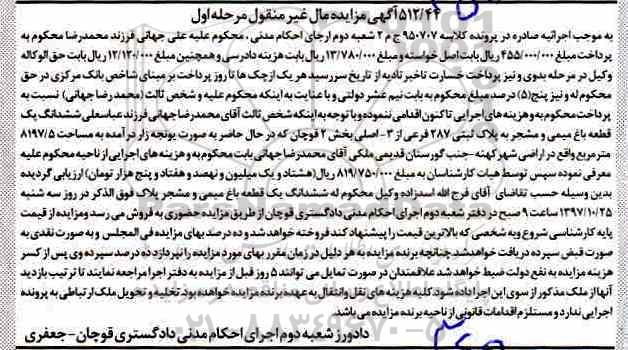 ۵۱۲/۴۴ آگهی مزایده مال غیر منقول مرحله اول
به موجب اجرائیه صادره در پرونده کلاسه ۹۵۰۷۰۷ ج م ۲ شعبه دوم اجرای احکام مدنی ، محکوم علیه علی جهانی فرزند محمدرضا محکوم به
پرداخت مبلغ ۴۵۵/۰۰۰/۰۰۰ ریال بابت اصل خواسته و مبلغ ۱۳/۷۸۰/۰۰۰ ریال بابت هزینه دادرسی و همچنین مبلغ ۱۲/۱۲۰/۰۰۰ ریال بابت حق الوکاله
وکیل در مرحله بدوی و نیز پرداخت خسارت تاخیر تادیه از تاریخ سررسید هر یک از چک ها تا روز پرداخت بر مبنای شاخص بانک مرکزی در حق
محکوم له و نیز پنج(۵) درصد مبلغ محکوم به بابت نیم عشر دولتی و با عنایت به اینکه محکوم علیه و شخص ثالث (محمد رضا جهانی) نسبت به
پرداخت محکوم به و هزینه های اجرایی تاکنون اقدامی ننموده و با توجه به اینکه شخص ثالث آقای محمدرضا جهانی فرزند عباسعلی ششدانگ یک
قطعه باغ میمی و مشجر به پلاک ثبتی ۲۸۷ فرعی از ۳- اصلی بخش ۲ قوچان که در حال حاضر به صورت یونجه زار در آمده به مساحت ۸۱۹۷/۵
متر مربع واقع در اراضی شهر کهنه -جنب گورستان قدیمی ملکی آقای محمدرضا جهانی بابت محکوم به و هزینه های اجرایی از ناحیه محکوم علیه
معرفی نموده سپس توسط هیات کارشناسان به مبلغ ۸۱۹/۷۵۰/۰۰۰ ریال(هشتاد و یک میلیون و نهصد و هفتاد و پنج هزار تومان) ارزیابی گردیده
بدین وسیله حسب تقاضای آقای فرج الله اسدزاده وکیل محکوم له ششدانگ یک قطعه باغ میمی و مشجر پلاک فوق الذکر در روز سه شنبه
۱۳۹۷/۱۰/۲۵ ساعت ۹ صبح در دفتر شعبه دوم اجرای احکام مدنی دادگستری قوچان از طریق مزایده حضوری به فروش می رسد و مزایده از قیمت
پایه کارشناسی شروع و به شخصی که بالاترین قیمت را پیشنهاد کند فروخته خواهد شد و ده درصد بهای مزایده فی المجلس و به صورت نقدی به
صورت قبض سپرده دریافت خواهد شد چنانچه برنده مزایده به هر دلیل در زمان مقرر بهای مورد مزایده را نپردازد ده درصد سپرده وی پس از کسر
هزینه مزایده به نفع دولت ضبط خواهد شد علاقمندان در صورت تمایل می توانند ۵ روز قبل از مزایده به دفتر اجرا مراجعه نمایند تا ترتیب بازدید
آنها از ملک مذکور از سوی این اجرا داده شود کلیه هزینه های نقل وانتقال به عهده برنده مزایده خواهد بود تخلیه و تحویل ملک ارتباطی به پرونده
اجرایی ندارد و مستلزم اقدامات قانونی از ناحیه برنده مزایده می باشد.
دادورز شعبه دوم اجرای احکام مدنی دادگستری قوچان - جعفری